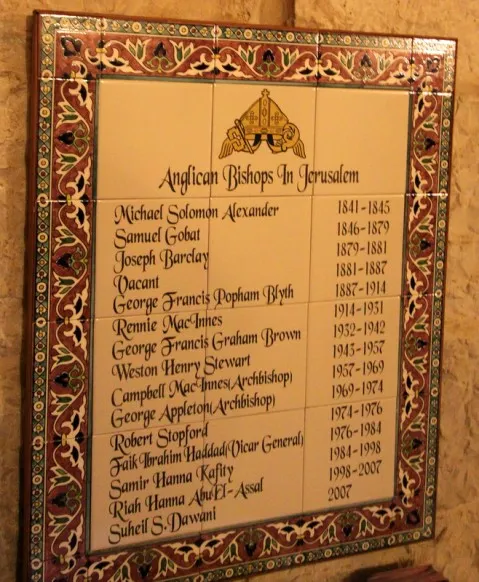 Anglican Bishops In Jerusalem
Michael Solomon Alexander 1841-1845
Samuel Gobat 1846-1879
Joseph Barclay 1879-1881
Vacant 1881-1887
George Francis Popham Blyth 1887-1914
Rennie MacInnes 1914-1931
George Francis Graham Brown 1932-1942
Weston Henry Stewart 1943-1957
Campbell MacInnes(Archbishop) 1957-1969
George Appleton(Archbishop) 1969-1974
Robert Stopford 1974-1976
Faik Ibrahim Haddad(Vicar General) 1976-1984
Samir Hanna Kafity 1984-1998
Riah Hanna Abu El-Assal 1998-2007
Suheil S.Dawani 2007